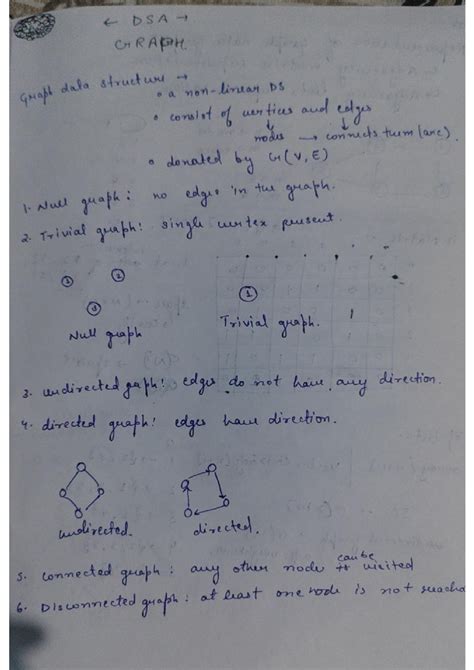 ← DSA →
GRAPH
Graph data structure →
• a non-linear DS
• consist of vertices and edges
nodes → connects them (arc)
• donated by G(V, E)
1. Null graph: no edges in the graph.
2. Trivial graph: single vertex present.
1 2 3
1
Null graph
Trivial graph.
3. undirected graph: edges do not have any direction.
4. directed graph: edges have direction.
undirected.
directed.
5. connected graph: any other node can be visited
6. Disconnected graph: at least one node is not reacha